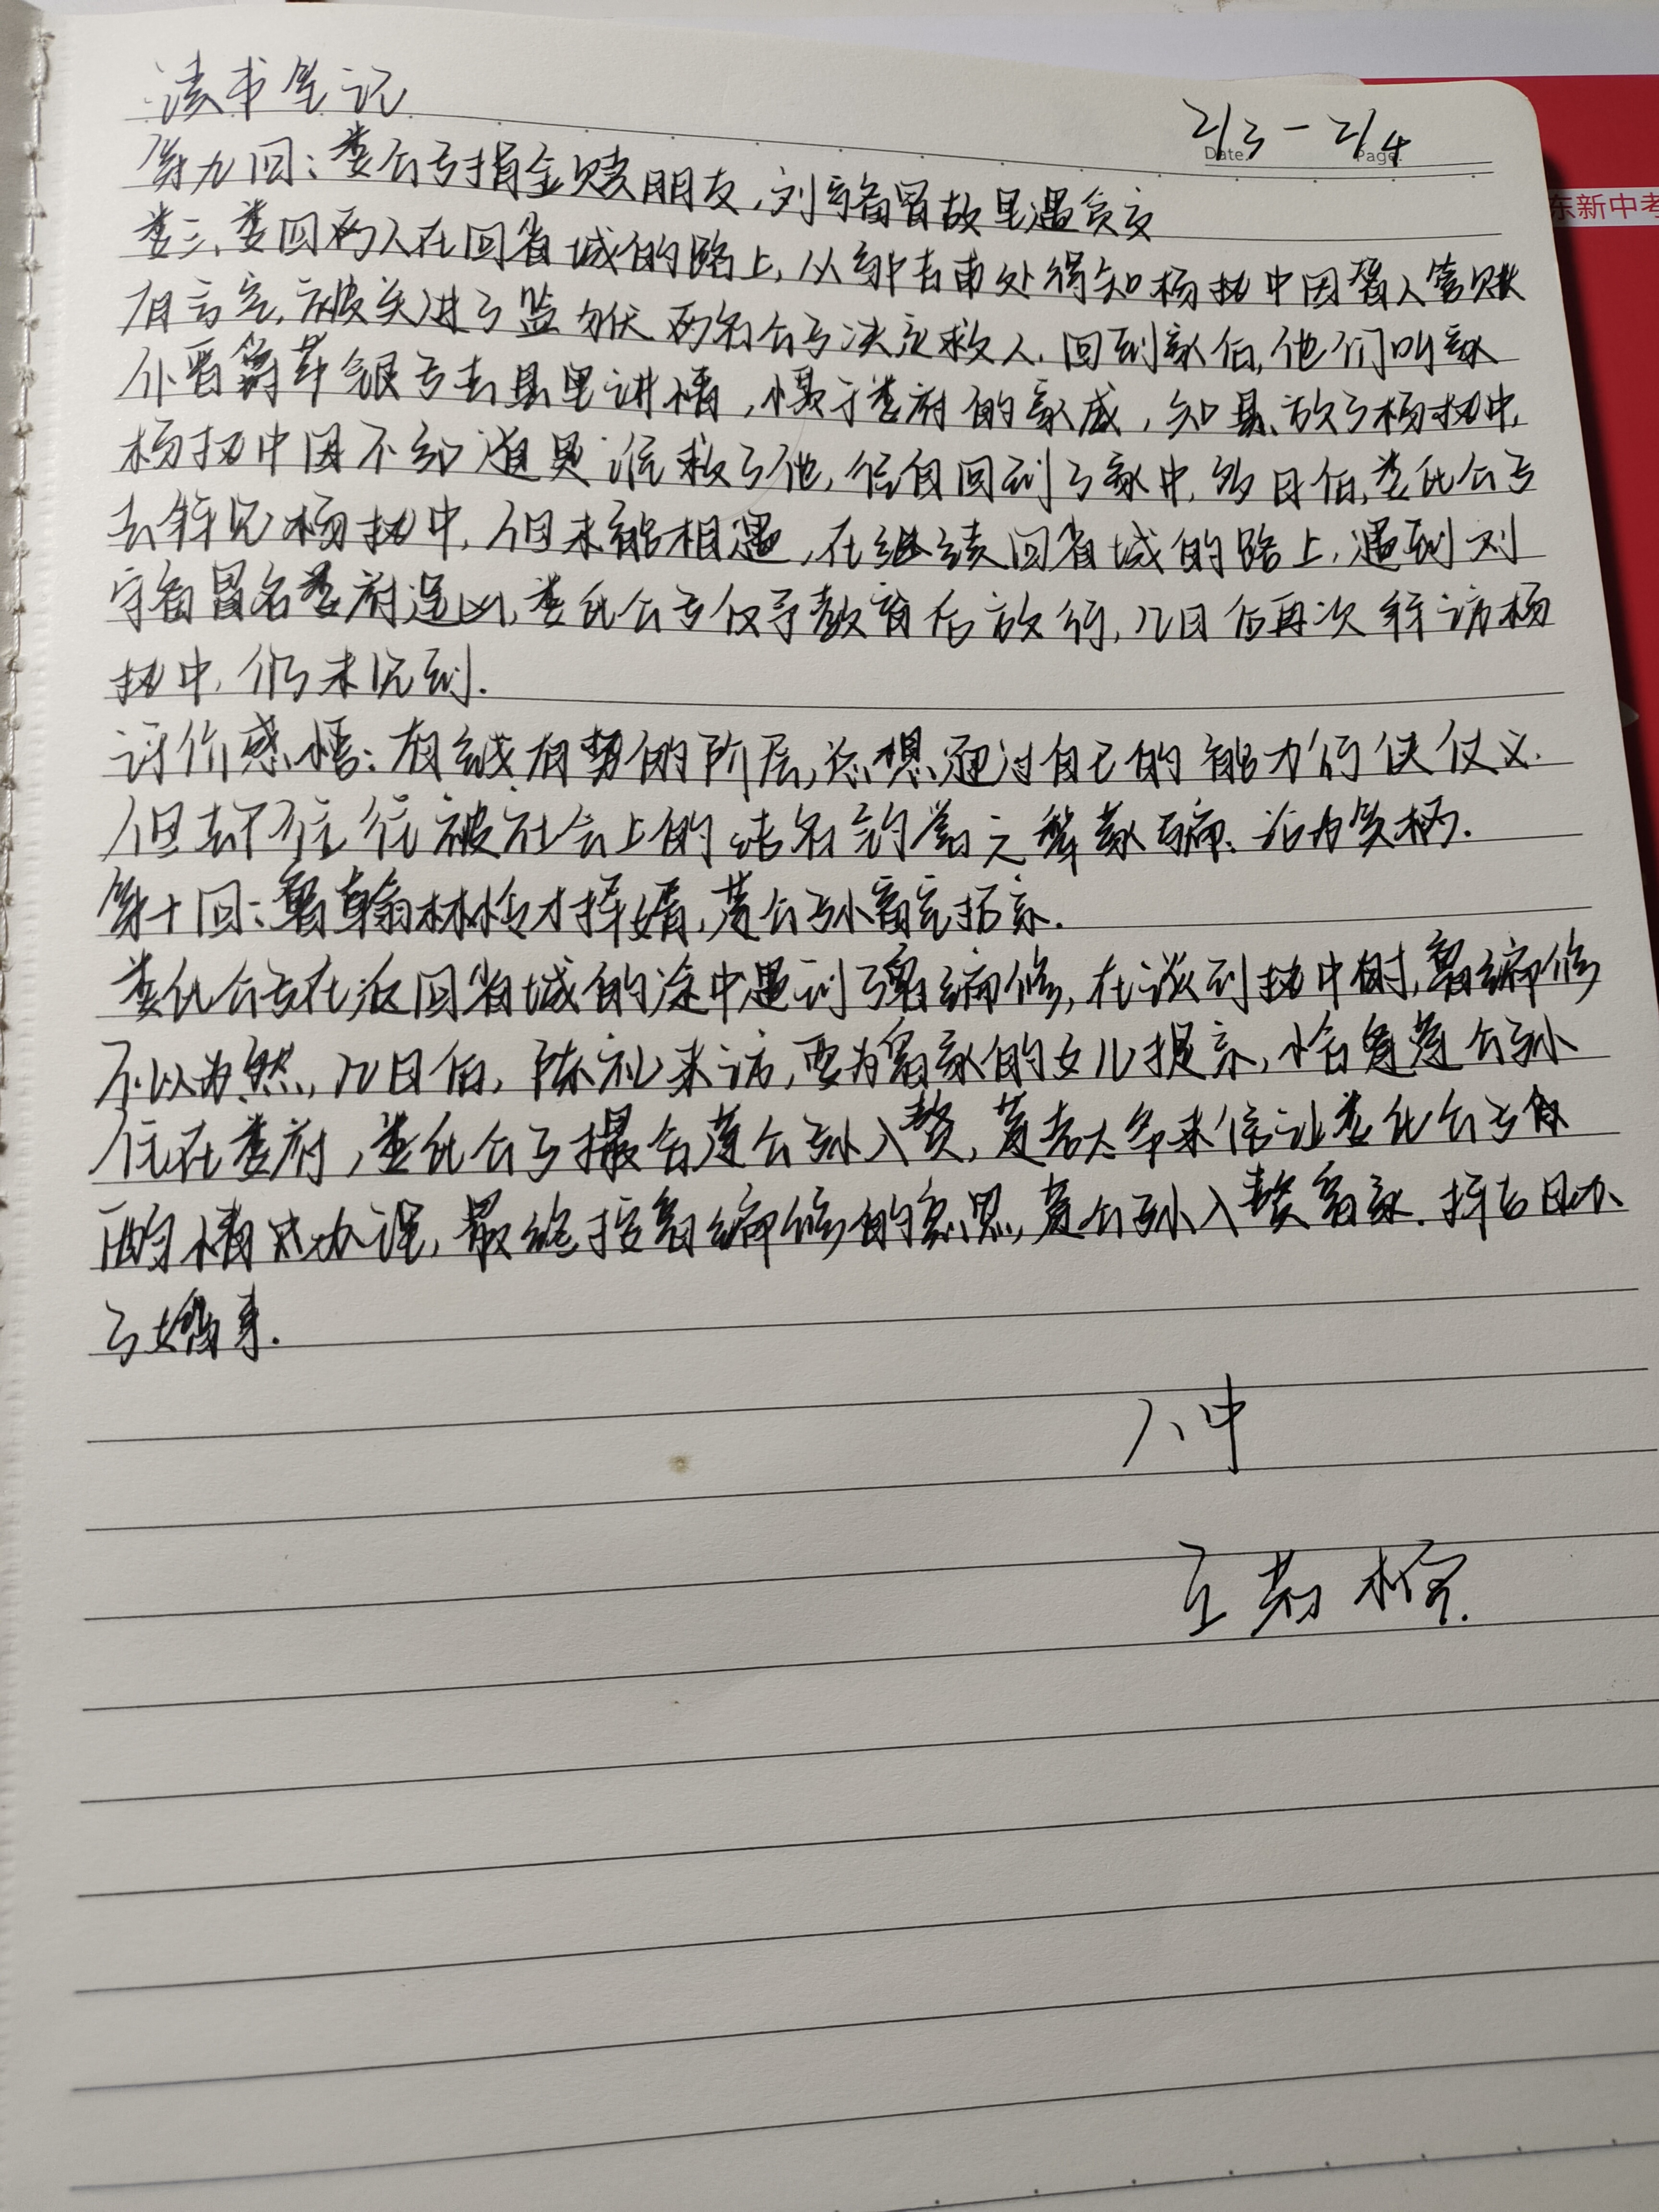 读书笔记
2/3-2/4
Date.
Page.
东新中考
第九回:娄公子捐金赎朋友,刘守备冒故里遇贫交
娄三、娄四两人在回省城的路上,从邹吉甫处得知杨执中因替人管账
有亏空,被关进了监狱.两名公子决定救人.回到家后,他们叫家
仆晋爵带银子去县里讲情,慑于娄府的家威,知县放了杨执中.
杨执中因不知道是谁救了他,径自回到了家中.多日后,娄氏公子
去拜见杨执中,但未能相遇,在继续回省城的路上,遇到刘
守备冒名娄府逞凶,娄氏公子仅予教育后放行,几日后再次拜访杨
执中,仍未见到.
评价感悟:有钱有势的阶层,总想通过自己的能力行侠仗义.
但却往往被社会上的沽名钓誉之辈欺骗、沦为笑柄.
第十回:鲁翰林怜才择婿,蘧公孙富室招亲.
娄氏公子在返回省城的途中遇到了鲁编修,在谈到执中时,鲁编修
不以为然,几日后,陈礼来访,要为鲁家的女儿提亲,恰逢蘧公孙
住在娄府,娄氏公子撮合蘧公孙入赘,蘧老太爷来信让娄氏公子
酌情式办理,最终按鲁编修的意思,蘧公孙入赘鲁家.择吉日办
了婚事.
八中
王